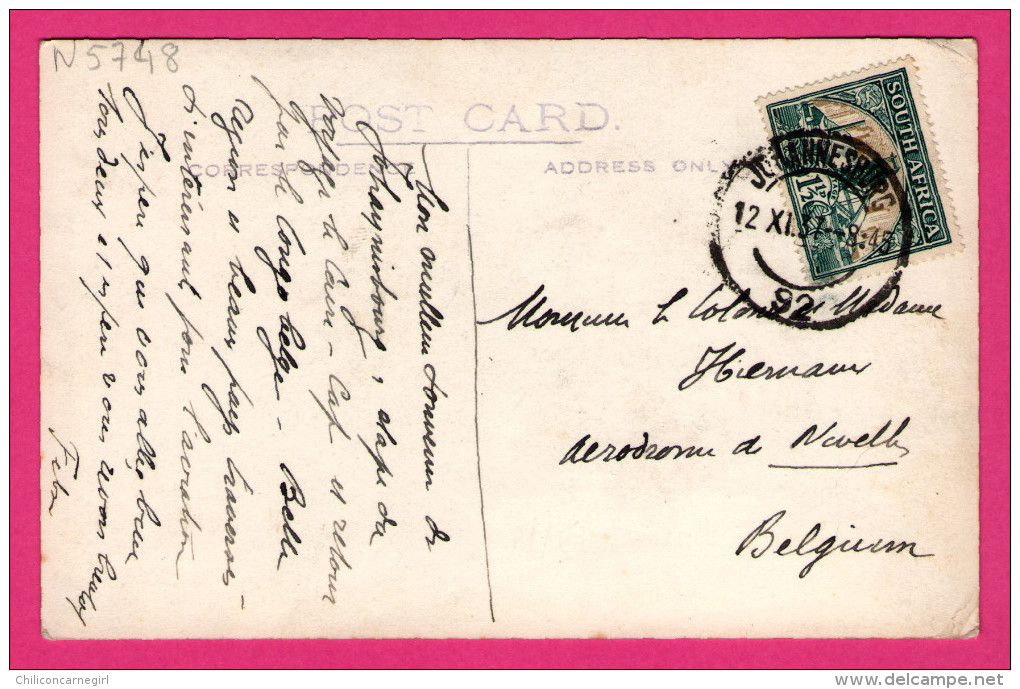 N 5748
POST CARD.
CORRESPONDENCE
ADDRESS ONLY
SOUTH AFRICA
1½D
JOHANNESBURG
12 XI 8:45
92
Mon meilleur souvenir de
Johannisbourg, étape du
voyage le Caire - Cap et retour
par le Congo belge - Belle
région et beaux pays traversés -
d'intéressant pour l'aviation
J'espère que vous allez bien
tous deux et espère vous revoir
Monsieur le Colonel et Madame
Hiernaux
aerodrome de Nivelles
Belgium
Chiliconcarnegirl
delcampe.net